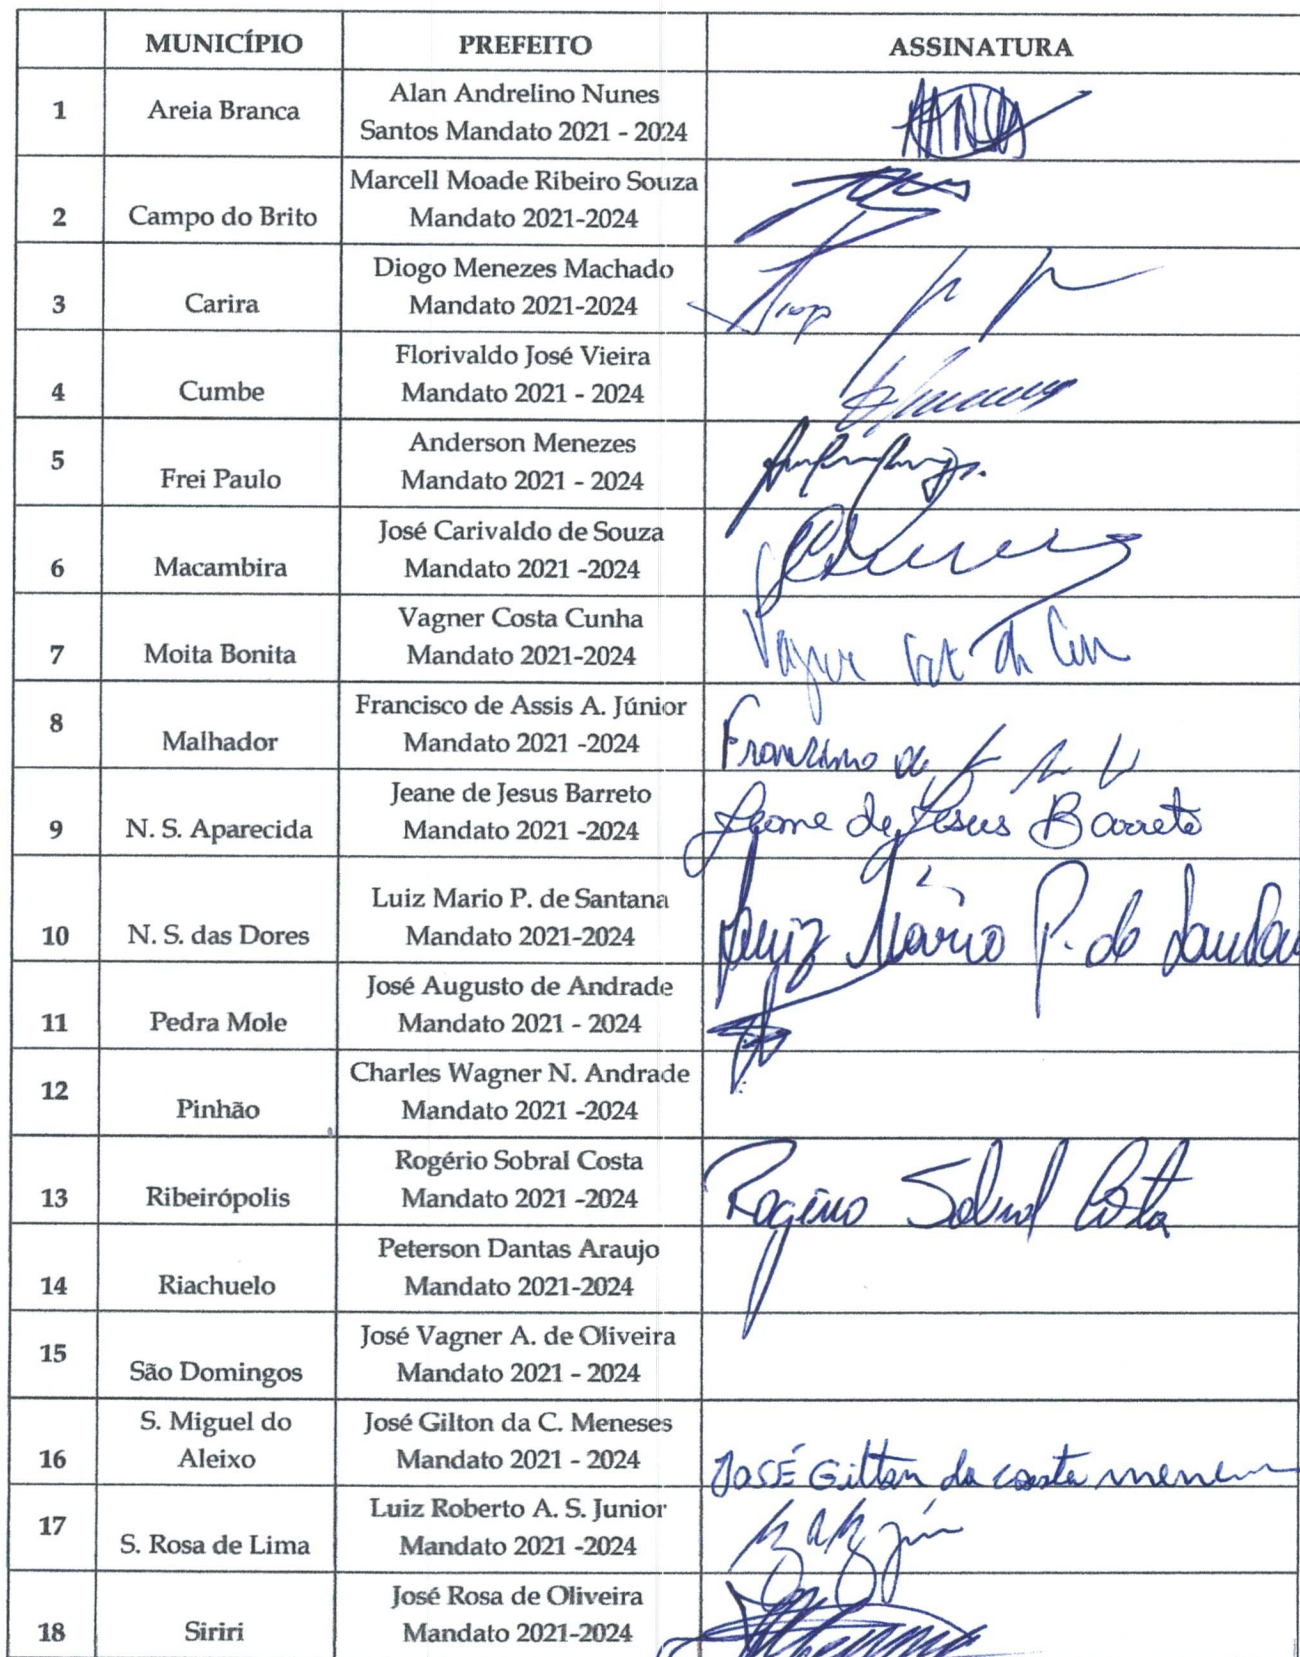 MUNICÍPIO PREFEITO ASSINATURA
1 Areia Branca Alan Andrelino Nunes
Santos Mandato 2021 - 2024
2 Campo do Brito Marcell Moade Ribeiro Souza
Mandato 2021-2024
3 Carira Diogo Menezes Machado
Mandato 2021-2024
4 Cumbe Florivaldo José Vieira
Mandato 2021 - 2024
5 Frei Paulo Anderson Menezes
Mandato 2021 - 2024
6 Macambira José Carivaldo de Souza
Mandato 2021 -2024
7 Moita Bonita Vagner Costa Cunha
Mandato 2021-2024
8 Malhador Francisco de Assis A. Júnior
Mandato 2021 -2024
9 N. S. Aparecida Jeane de Jesus Barreto
Mandato 2021 -2024 Jeane de Jesus Barreto
10 N. S. das Dores Luiz Mario P. de Santana
Mandato 2021-2024 Luiz Mário P. de Santana
11 Pedra Mole José Augusto de Andrade
Mandato 2021 - 2024
12 Pinhão Charles Wagner N. Andrade
Mandato 2021 -2024
13 Ribeirópolis Rogério Sobral Costa
Mandato 2021 -2024 Rogério Sobral Costa
14 Riachuelo Peterson Dantas Araujo
Mandato 2021-2024
15 São Domingos José Vagner A. de Oliveira
Mandato 2021 - 2024
16 S. Miguel do José Gilton da C. Meneses
Aleixo Mandato 2021 - 2024 JOSÉ Gilton da costa
17 S. Rosa de Lima Luiz Roberto A. S. Junior
Mandato 2021 -2024
18 Siriri José Rosa de Oliveira
Mandato 2021-2024